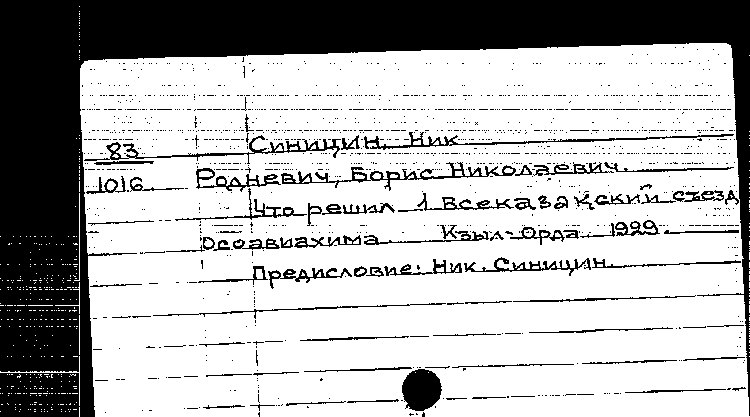 83 Синицин, Ник
1016 Родневич, Борис Николаевич.
Что решил 1 Всеказакский съезд
Осоавиахима. Кзыл-Орда. 1929.
Предисловие: Ник. Синицин.